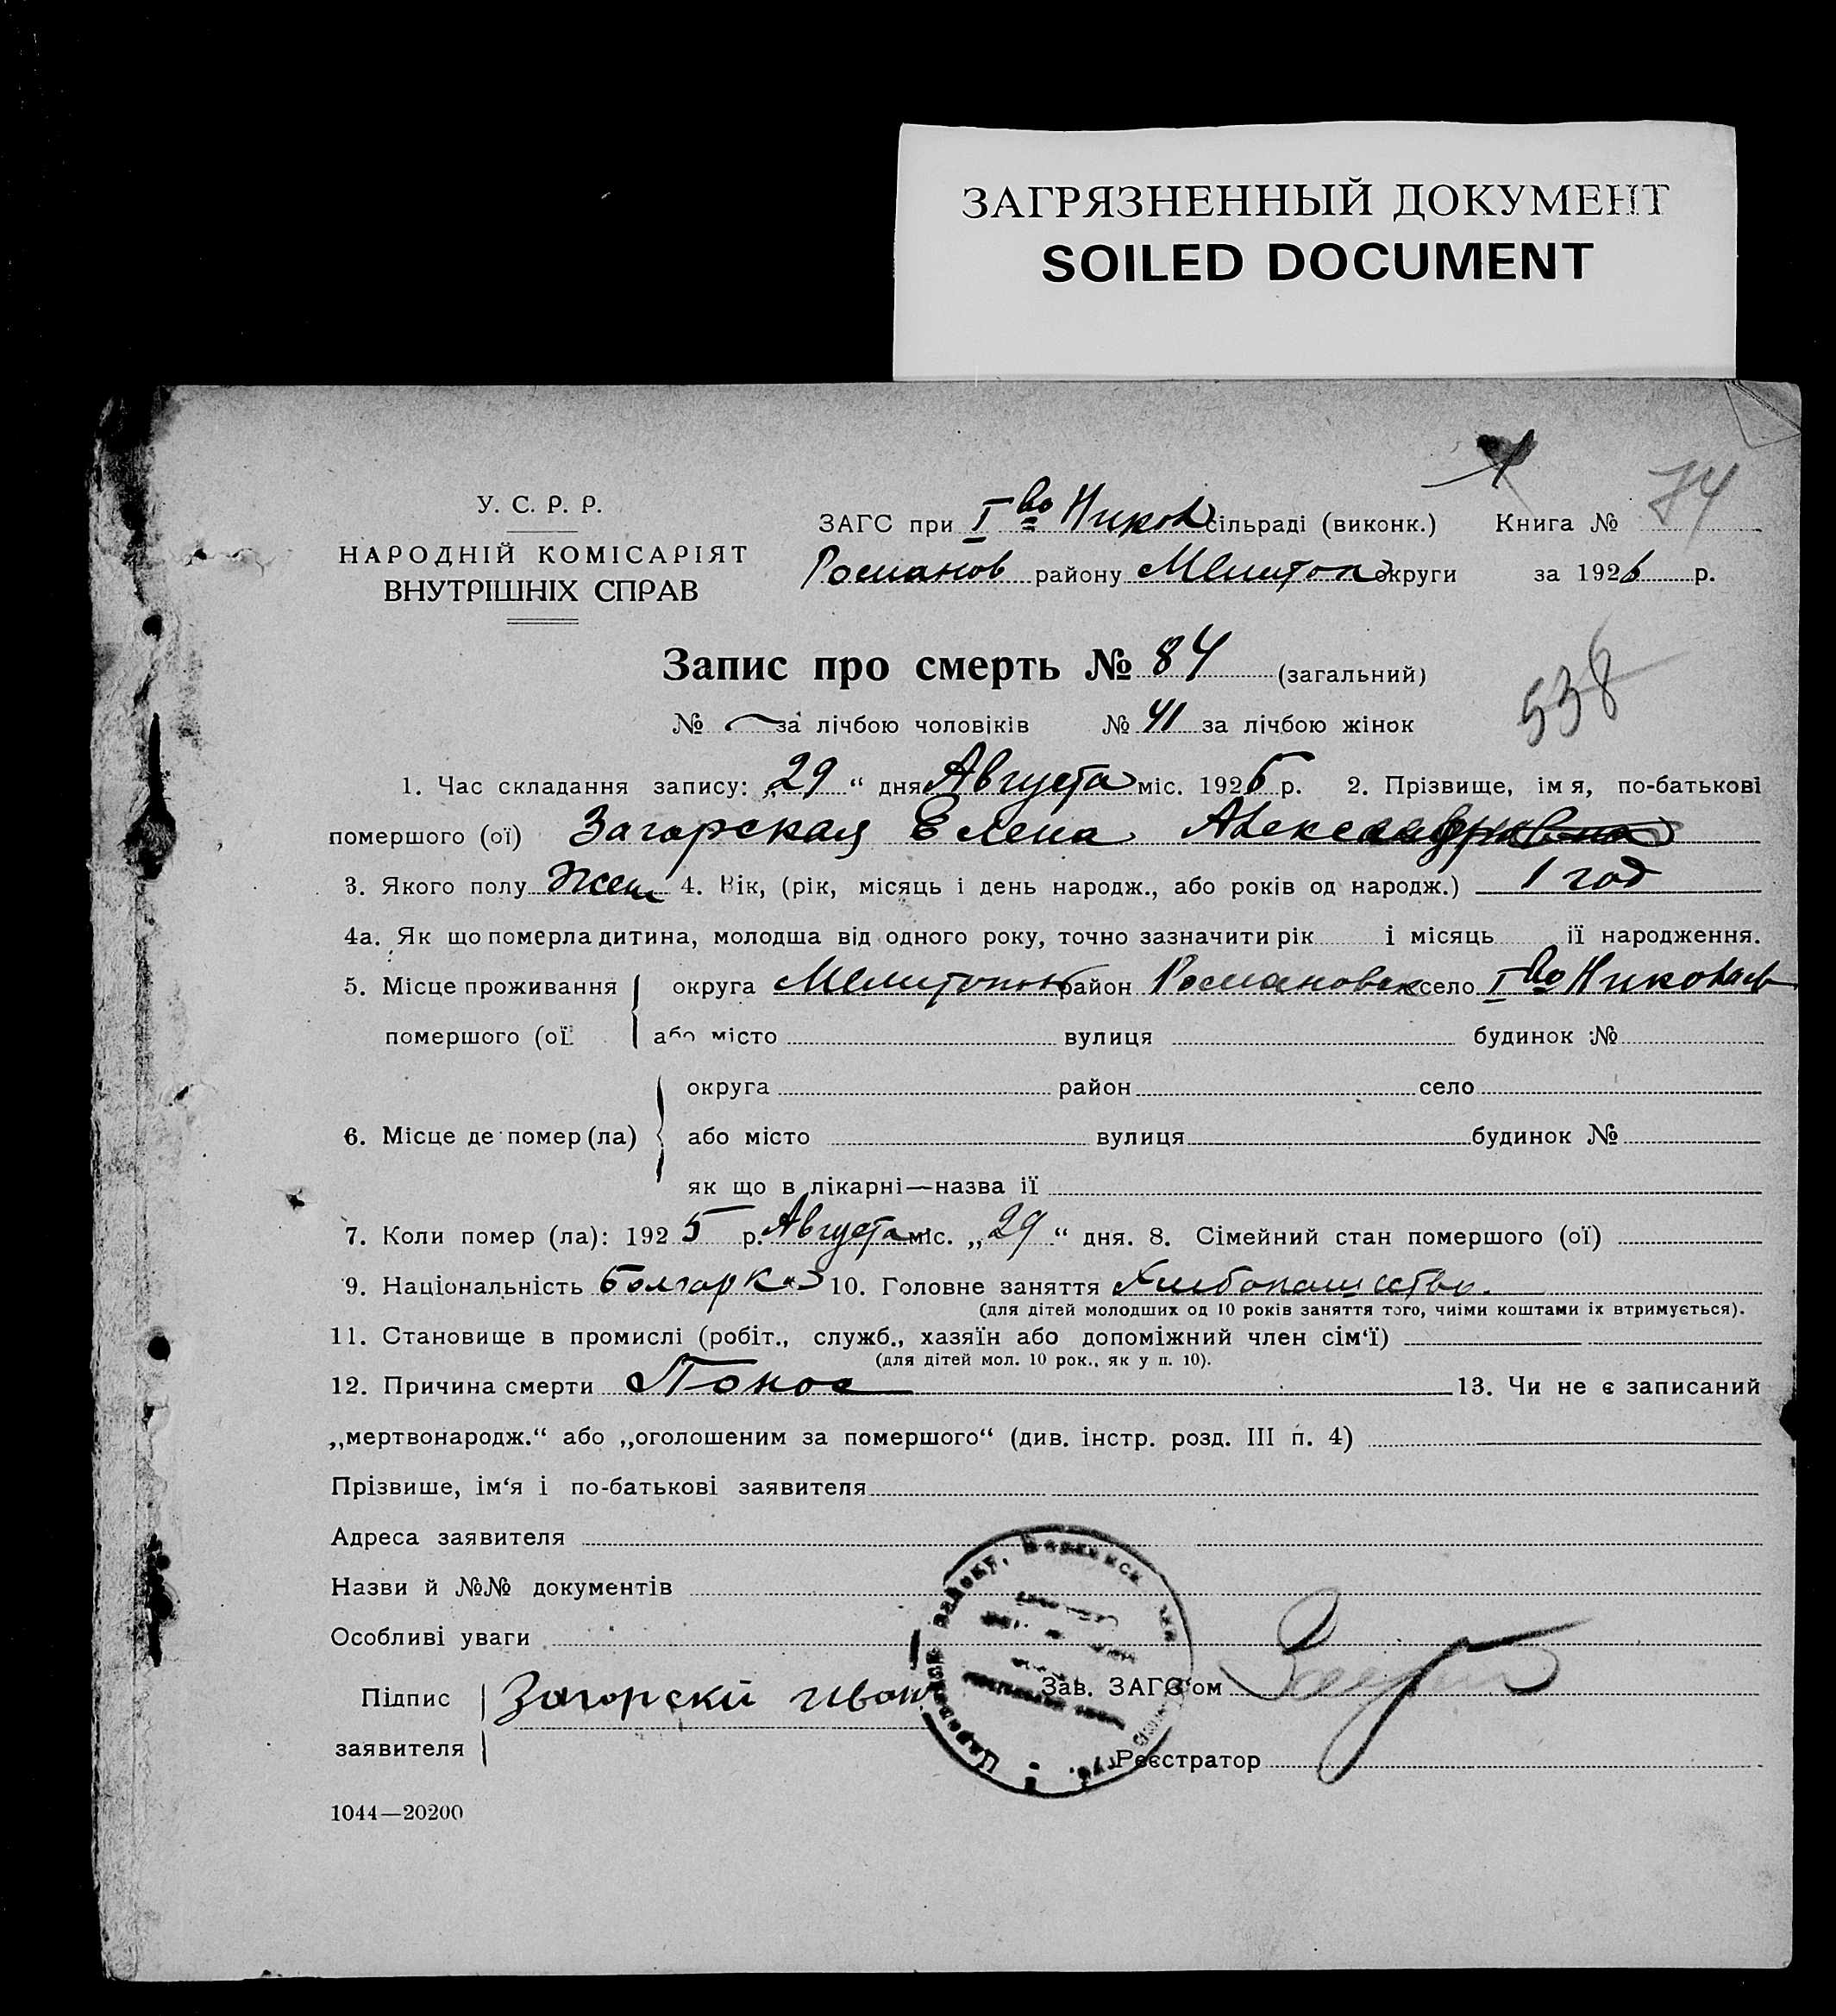 ЗАГРЯЗНЕННЫЙ ДОКУМЕНТ
SOILED DOCUMENT
У. С. Р. Р.
НАРОДНІЙ КОМІСАРІЯТ
ВНУТРІШНІХ СПРАВ
ЗАГС при I во Никол сільраді (виконк.) Книга № 74
Романов району Мелитоп округи за 1926 р.
Запис про смерть № 84 (загальний)
538
№ — за лічбою чоловіків № 41 за лічбою жінок
1. Час складання запису: „29“ дня Августа міс. 1925 р. 2. Прізвище, імя, по-батькові
помершого (ої) Загорская Елена Александровна
3. Якого полу Жен 4. Вік, (рік, місяць і день народж., або років од народж.) 1 год
4а. Як що померла дитина, молодша від одного року, точно зазначити рік і місяць її народження.
5. Місце проживання округа Мелитопол район Романовск село I во Николаев
помершого (ої або місто вулиця будинок №
округа район село
6. Місце де помер (ла) або місто вулиця будинок №
як що в лікарні—назва її
7. Коли помер (ла): 1925 р. Августа міс. „29“ дня. 8. Сімейний стан помершого (ої)
9. Національність Болгарка 10. Головне заняття Хлибопашество.
(для дітей молодших од 10 років заняття того, чиїми коштами їх втримується).
11. Становище в промислі (робіт., служб., хазяїн або допоміжний член сім‘ї)
(для дітей мол. 10 рок., як у п. 10).
12. Причина смерти Понос 13. Чи не є записаний
„мертвонародж.“ або „оголошеним за помершого“ (див. інстр. розд. III п. 4)
Прізвише, ім‘я і по-батькові заявителя
Адреса заявителя
Назви й №№ документів
Особливі уваги
Підпис Загорскй Иван Зав. ЗАГС‘ом
заявителя Реєстратор
1044—20200